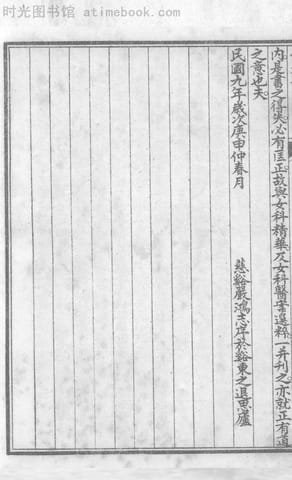 时光图书馆 - atimebook.com
内是書之得失必有匡正故與女科精華及女科醫案選粹一并刊之亦就正有道
之意也夫
民國九年歲次庚申仲春月
慈谿嚴鴻志序於谿東之退思廬